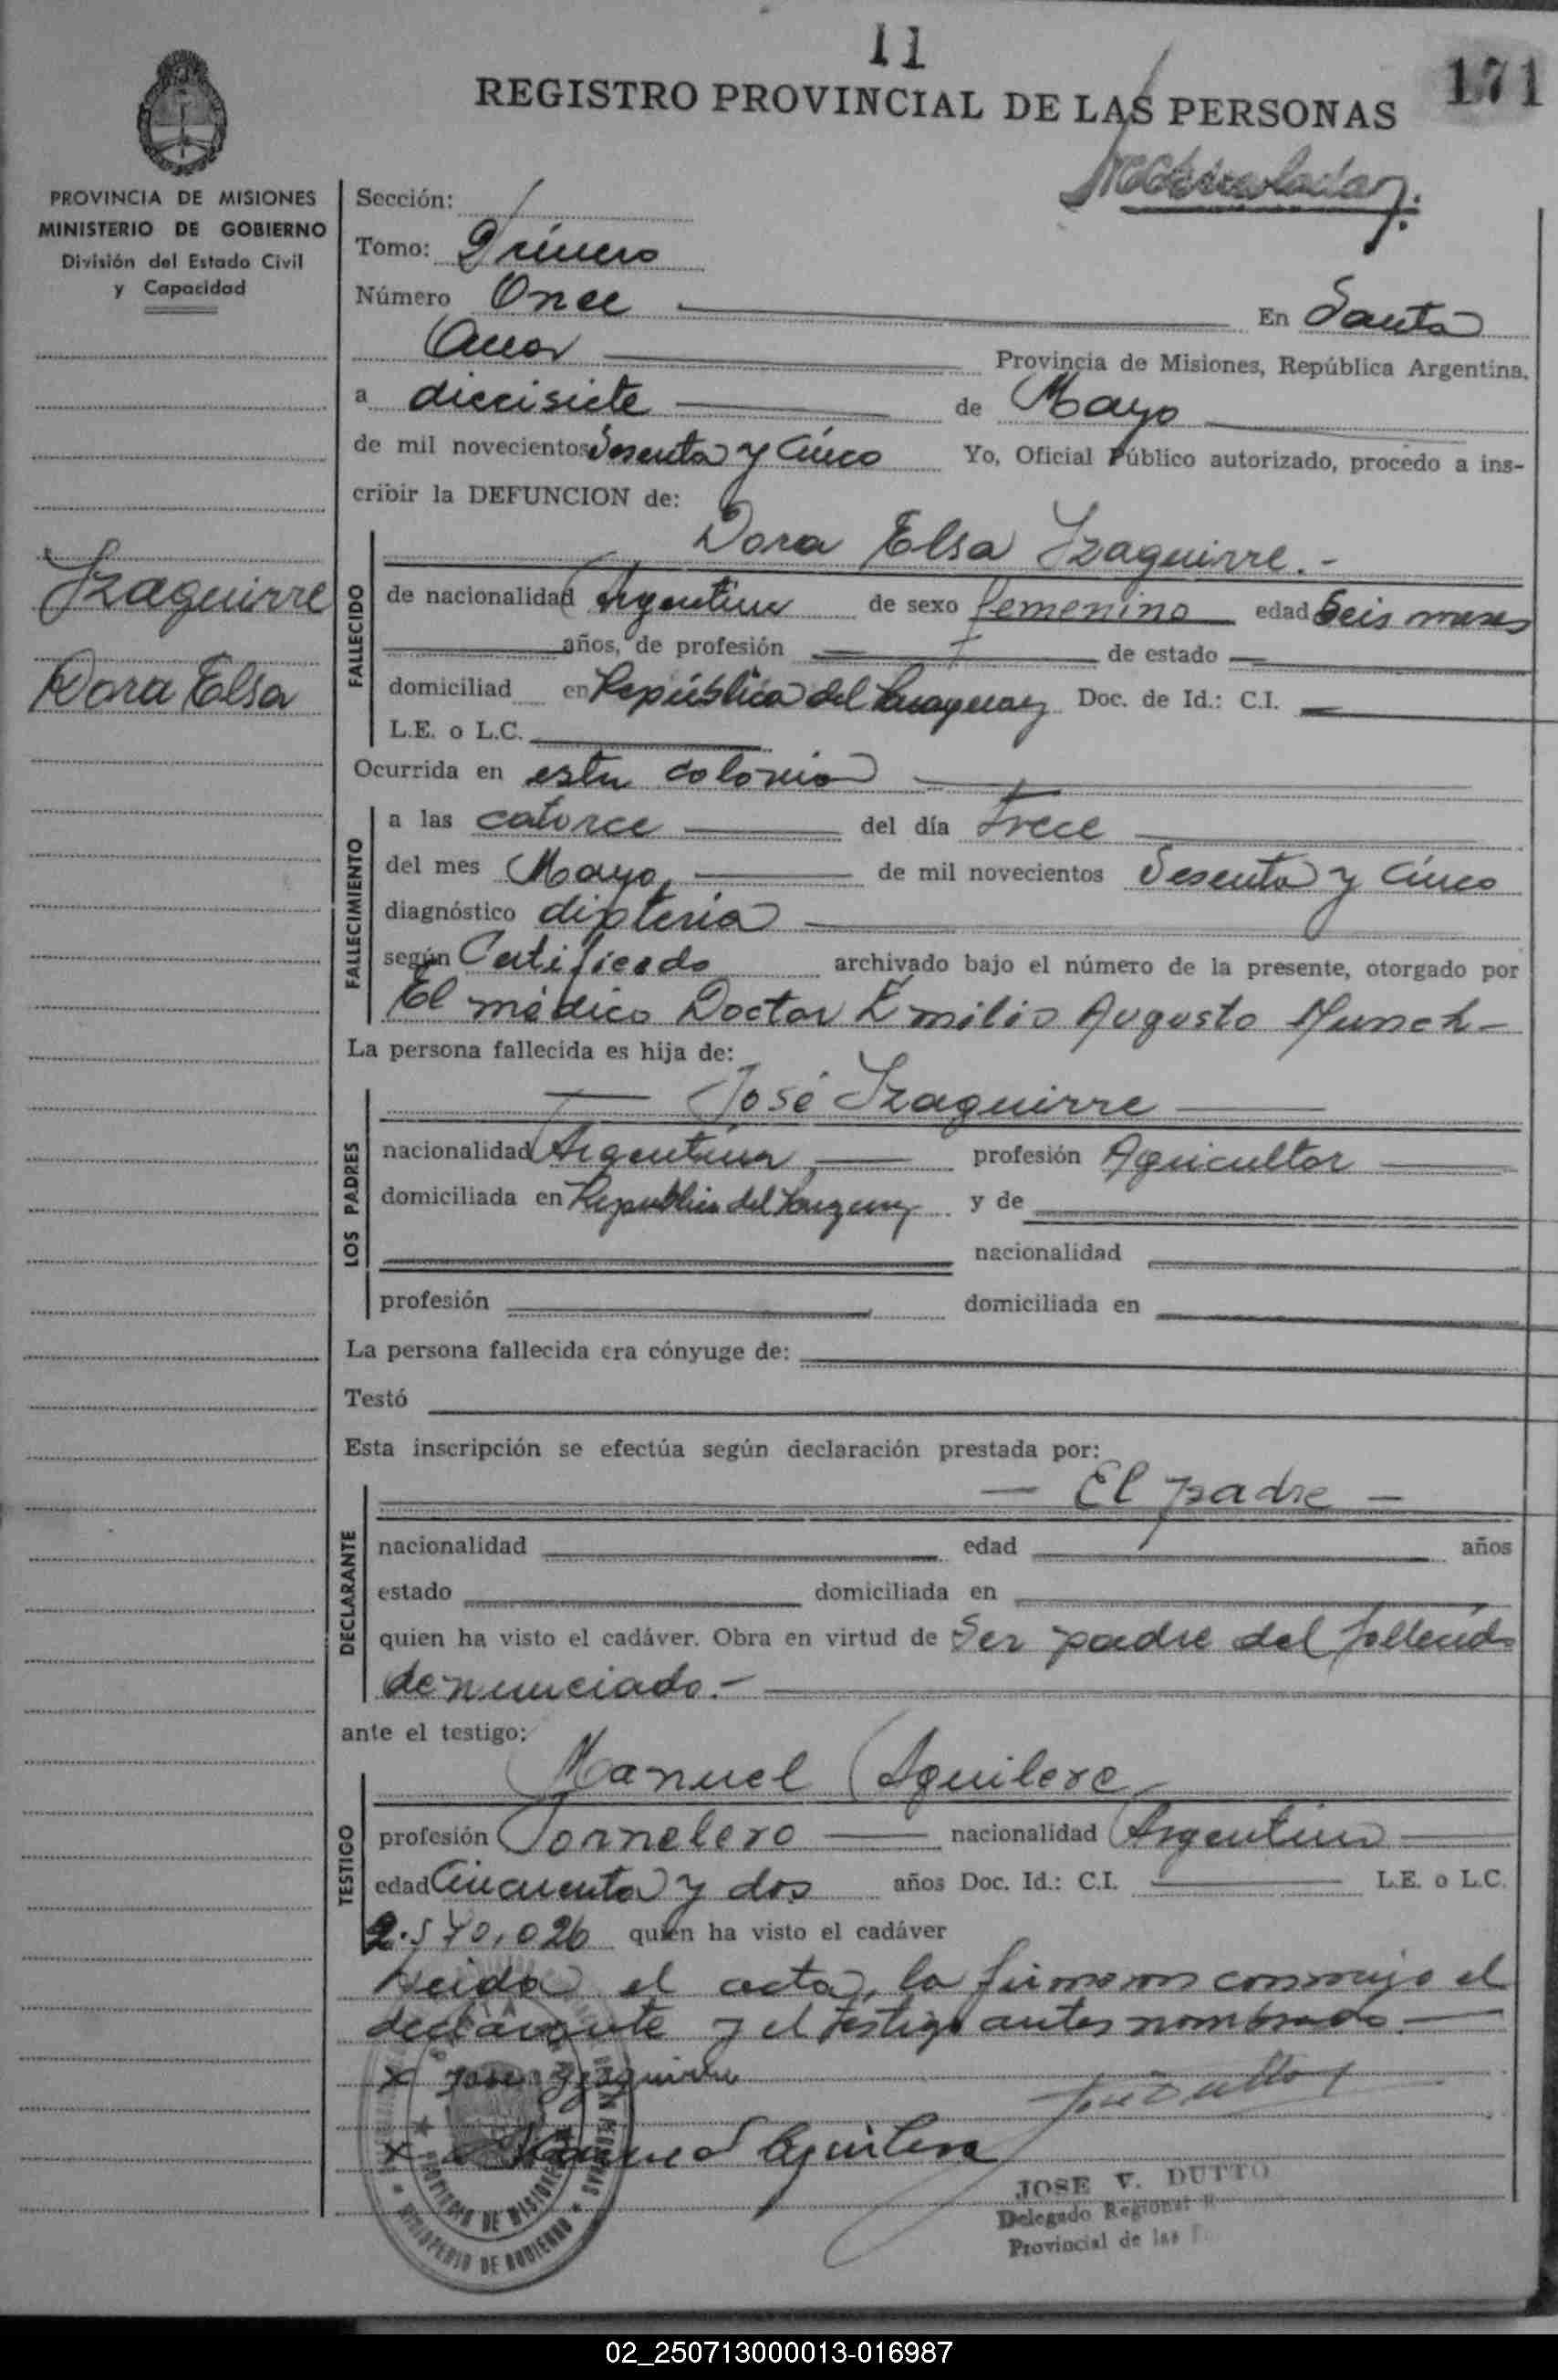 11
171
REGISTRO PROVINCIAL DE LAS PERSONAS
PROVINCIA DE MISIONES
MINISTERIO DE GOBIERNO
División del Estado Civil
y Capacidad
Izaguirre
Dora Elsa
Sección:
Tomo: Primero
Número Once En Santa
Ana Provincia de Misiones, República Argentina,
a diecisiete de Mayo
de mil novecientos Sesenta y Cinco Yo, Oficial Público autorizado, procedo a ins-
cribir la DEFUNCION de:
Dora Elsa Izaguirre.-
FALLECIDO
de nacionalidad Argentina de sexo femenino edad Seis meses
años, de profesión de estado
domiciliad en República del Paraguay Doc. de Id.: C.I.
L.E. o L.C.
Ocurrida en esta colonia
FALLECIMIENTO
a las catorce del día trece
del mes Mayo, de mil novecientos Sesenta y Cinco
diagnóstico difteria
según Certificado archivado bajo el número de la presente, otorgado por
El médico Doctor Emilio Augusto Munch-
La persona fallecida es hija de:
LOS PADRES
— José Izaguirre —
nacionalidad Argentina, profesión Agricultor
domiciliada en Republica del Paraguay y de
nacionalidad
profesión domiciliada en
La persona fallecida era cónyuge de:
Testó
Esta inscripción se efectúa según declaración prestada por:
DECLARANTE
— El padre —
nacionalidad edad años
estado domiciliada en
quien ha visto el cadáver. Obra en virtud de Ser padre del fallecido
denunciado.-
ante el testigo:
TESTIGO
Manuel Aguilera
profesión Jornalero nacionalidad Argentina
edad Cincuenta y dos años Doc. Id.: C.I. L.E. o L.C.
2.570.026 quien ha visto el cadáver
Leida el acta, la firmaron conmigo el
declarante y el testigo antes nombrado.-
x Jose Izaguirre
x Manuel Aguilera
JOSE V. DUTTO
Delegado Regional
Provincial de las
PROVINCIA DE MISIONES
MINISTERIO DE GOBIERNO
02_250713000013-016987